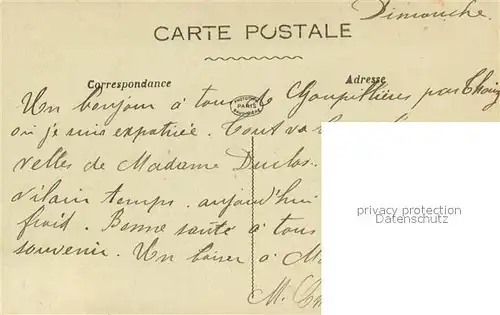 Dimanche.
CARTE POSTALE
Correspondance
Adresse
PARIS
Un bonjour à tous de Goupillières par Thoiry
où je suis expatriée. Tout va
velles de Madame Duclos.
vilain temps. aujourd'hui
froid. Bonne santé à tous
souvenir. Un baiser à M
M.
privacy protection
Datenschutz